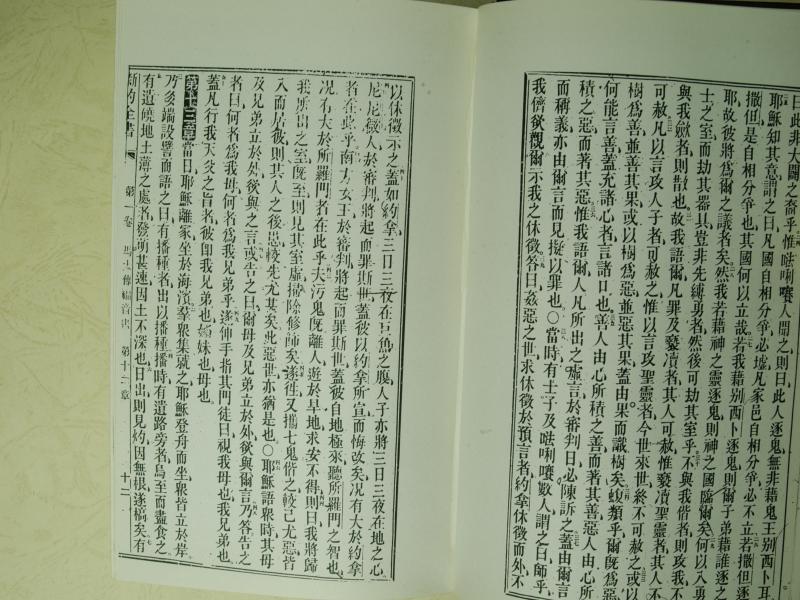 曰此非大闢之裔乎惟𠵽唎㘔人聞之則曰此人逐鬼無非藉鬼王别西卜耳
耶穌知其意謂之曰凡國自相分爭必墟凡家邑自相分爭必不立若撒但逐
撒但是自相分爭也其國何以立哉若我藉别西卜逐鬼則爾子弟藉誰逐之
耶故彼將爲爾之議者矣然我若藉神之靈逐鬼則神之國臨爾矣何以入勇
士之室而劫其器具豈非先縛勇者然後可劫其室乎不與我偕者則攻我不
與我斂者則散也故我語爾凡罪及䙝瀆者其人可赦惟䙝瀆聖靈者其人不
可赦凡以言攻人子者可赦之惟以言攻聖靈者今世來世終不可赦之或以
樹爲善並善其果或以樹爲惡並惡其果蓋由果而識樹矣蝮類乎爾旣爲惡
何能言善蓋充諸心者言諸口也善人由心所積之善而著其善惡人由心所
積之惡而著其惡惟我語爾人凡所出之虛言於審判日必陳訴之蓋由爾言
而稱義亦由爾言而見擬以罪也○當時有士子及唎㘔數人謂之曰師乎
我儕欲觀爾示我之休徵答曰姦惡之世求休徵於預言者約拿休徵而外不
以休徵示之蓋如約拿三日三夜在巨魚之腹人子亦將三日三夜在地之心
尼尼微人於審判將起而罪斯世蓋彼以約拿所宣而悔改矣况有大於約拿
者在此乎南方女王於審判將起而罪斯世蓋彼自地極來聽所羅門之智也
况有大於所羅門者在此乎夫污鬼旣離人遊於旱地求安不得則曰我將歸
我所出之室旣至則見其室虛掃除修飾矣遂往又攜七鬼偕之較己尤惡皆
入而居彼則其人之後患較先尤甚矣此惡世亦猶是也○耶穌語衆時其母
及兄弟立於外欲與之言或告之曰爾母及兄弟立於外欲與爾言乃答告之
者曰何者爲我母何者爲我兄弟乎遂伸手指其門徒曰視我母也我兄弟也
蓋凡行我天父之旨者彼卽我兄弟也姊妹也母也
第十三章當日耶穌離家坐於海濱羣衆集就之耶穌登舟而坐衆皆立於岸
乃多端設譬而語之曰有播種者出以播種播時有遺路旁者鳥至而盡食之
有遺磽地土薄之處者發萌甚速因土不深也日出則見灼因無根遂槁矣有
新約全書 第一卷 馬太傳福音書 第十三章 十二